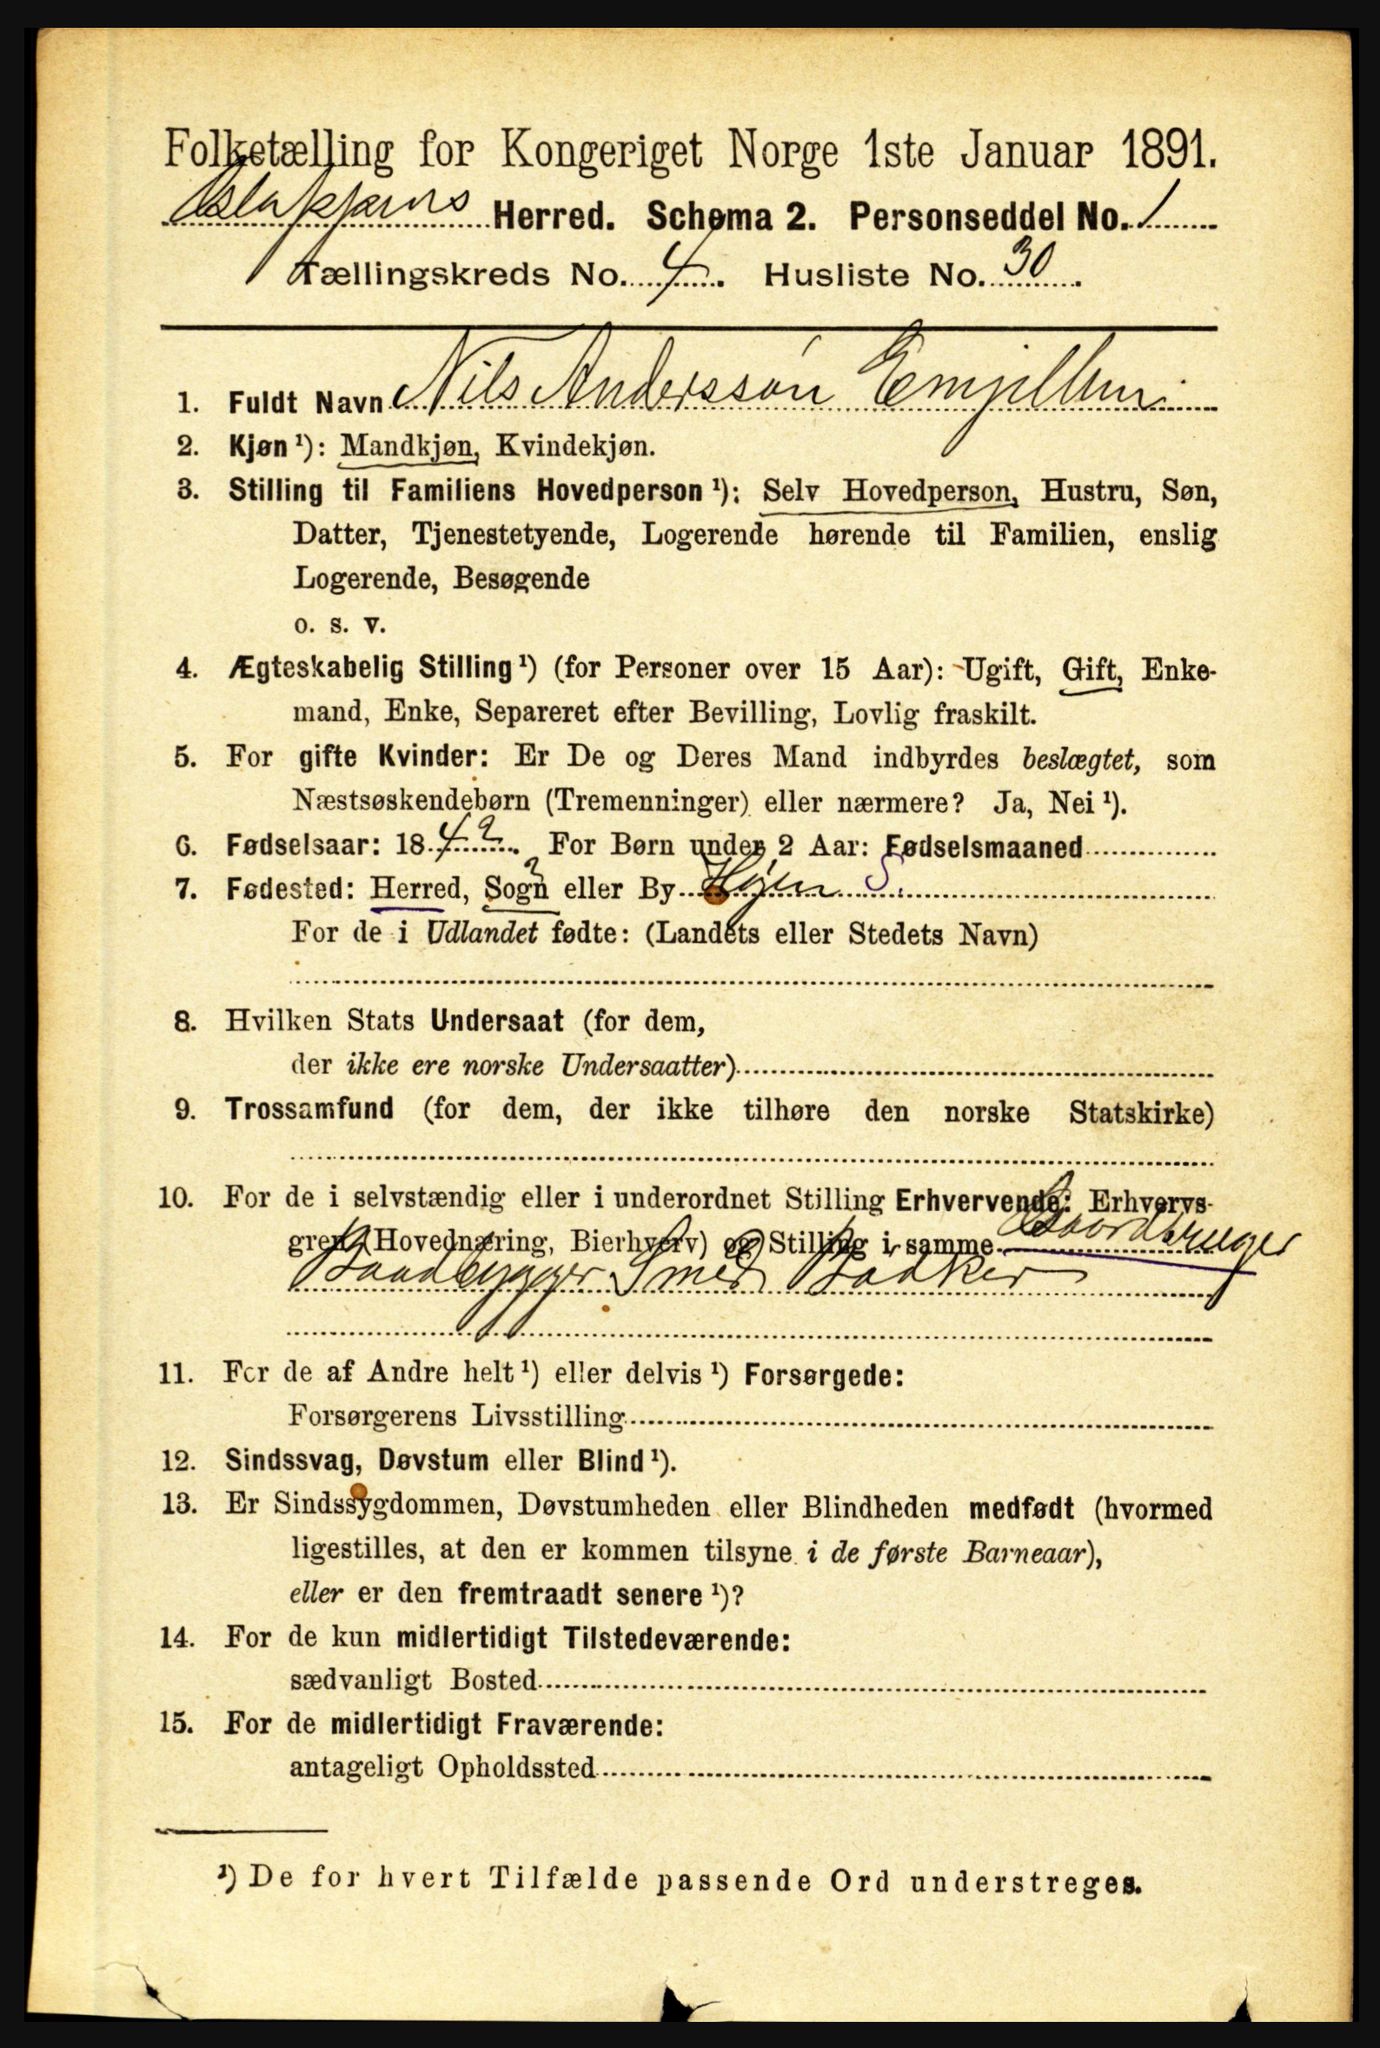 Folketælling for Kongeriget Norge 1ste Januar 1891.
Herred. Schema 2. Personseddel No. 1
Tællingskreds No. 4. Husliste No. 30.
1. Fuldt Navn Nils Anderssøn
2. Kjøn ¹): Mandkjøn, Kvindekjøn.
3. Stilling til Familiens Hovedperson ¹): Selv Hovedperson, Hustru, Søn,
Datter, Tjenestetyende, Logerende hørende til Familien, enslig
Logerende, Besøgende
o. s. v.
4. Ægteskabelig Stilling ¹) (for Personer over 15 Aar): Ugift, Gift, Enke-
mand, Enke, Separeret efter Bevilling, Lovlig fraskilt.
5. For gifte Kvinder: Er De og Deres Mand indbyrdes beslægtet, som
Næstsøskendebørn (Tremenninger) eller nærmere? Ja, Nei ¹).
6. Fødselsaar: 1842. For Børn under 2 Aar: Fødselsmaaned
7. Fødested: Herred, Sogn eller By Højen S.
For de i Udlandet fødte: (Landets eller Stedets Navn)
8. Hvilken Stats Undersaat (for dem,
der ikke ere norske Undersaatter)
9. Trossamfund (for dem, der ikke tilhøre den norske Statskirke)
10. For de i selvstændig eller i underordnet Stilling Erhvervende: Erhvervs-
gren (Hovednæring, Bierhverv) og Stilling i samme Gaardbruger
Baadbygger Smed Bødker
11. For de af Andre helt ¹) eller delvis ¹) Forsørgede:
Forsørgerens Livsstilling
12. Sindssvag, Døvstum eller Blind ¹).
13. Er Sindssygdommen, Døvstumheden eller Blindheden medfødt (hvormed
ligestilles, at den er kommen tilsyne i de første Barneaar),
eller er den fremtraadt senere ¹)?
14. For de kun midlertidigt Tilstedeværende:
sædvanligt Bosted
15. For de midlertidigt Fraværende:
antageligt Opholdssted
¹) De for hvert Tilfælde passende Ord understreges.